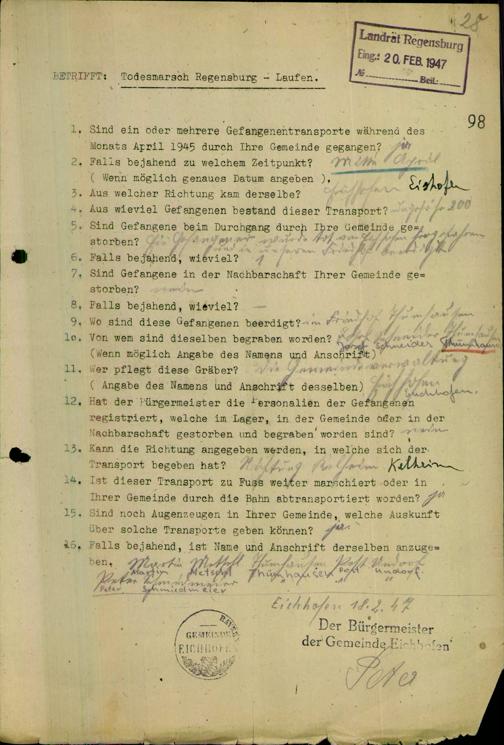 28
Landrat Regensburg
Eing.: 20. FEB. 1947
№ Beil.:
BETRIFFT: Todesmarsch Regensburg - Laufen.
98
1. Sind ein oder mehrere Gefangenentransporte während des
Monats April 1945 durch Ihre Gemeinde gegangen? ja
2. Falls bejahend zu welchem Zeitpunkt? Mitte April
( Wenn möglich genaues Datum angeben ).
3. Aus welcher Richtung kam derselbe? Eichhofen Eichhofen
4. Aus wieviel Gefangenen bestand dieser Transport? ungefähr 200
5. Sind Gefangene beim Durchgang durch Ihre Gemeinde ge=
storben? Ein Gefangener wurde tot
6. Falls bejahend, wieviel? 1
7. Sind Gefangene in der Nachbarschaft Ihrer Gemeinde ge=
storben? nein
8. Falls bejahend, wieviel? —
9. Wo sind diese Gefangenen beerdigt? im Friedhof Thumhausen
10. Von wem sind dieselben begraben worden? Josef Schneider Thumhausen
Josef Schneider Thumhausen
(Wenn möglich Angabe des Namens und Anschrift)
11. Wer pflegt diese Gräber? Die Gemeindeverwaltung
( Angabe des Namens und Anschrift desselben) Eichhofen
Eichhofen.
12. Hat der Bürgermeister die Personalien der Gefangenen
registriert, welche im Lager, in der Gemeinde oder in der
Nachbarschaft gestorben und begraben worden sind? nein
13. Kann die Richtung angegeben werden, in welche sich der
Transport begeben hat? Richtung Kelheim Kelheim
14. Ist dieser Transport zu Fuss weiter marschiert oder in
Ihrer Gemeinde durch die Bahn abtransportiert worden? ja
15. Sind noch Augenzeugen in Ihrer Gemeinde, welche Auskunft
über solche Transporte geben können? ja.
16. Falls bejahend, ist Name und Anschrift derselben anzuge=
ben. Martin Thumhausen Post Undorf
Martin Thumhausen Post Undorf.
Peter Schmiedmeier
Peter Schmiedmeier
Eichhofen 18.2.47
GEMEINDE
EICHHOFEN
Der Bürgermeister
der Gemeinde Eichhofen